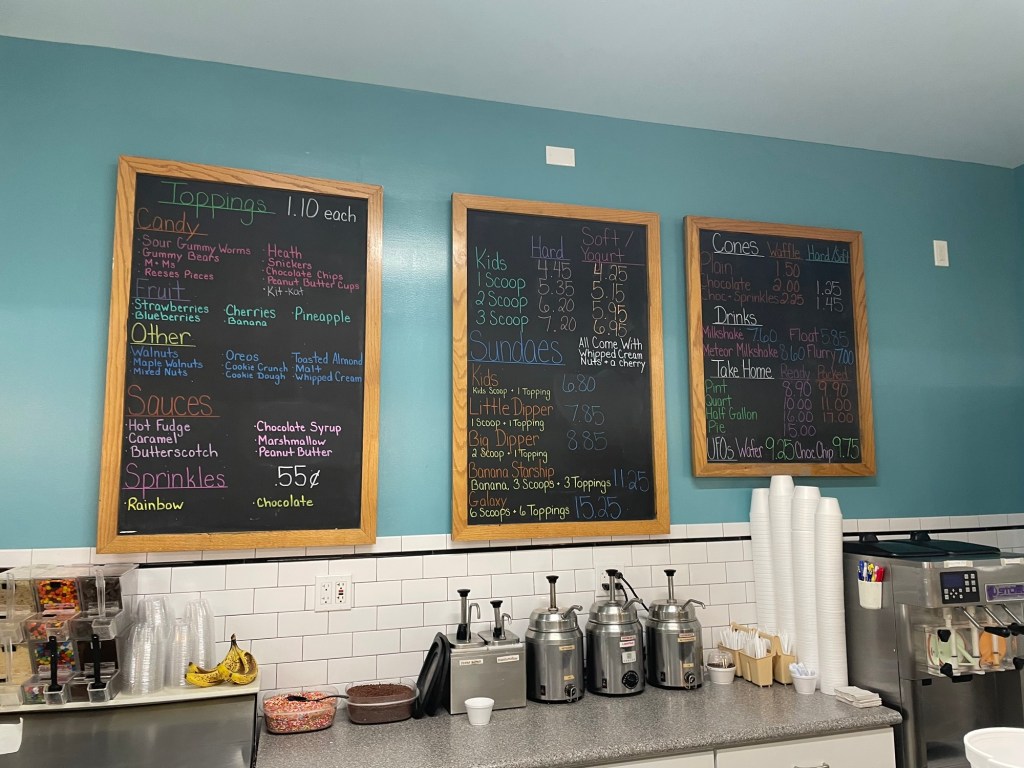 Toppings 1.10 each
Candy
· Sour Gummy Worms
· Gummy Bears
· M+Ms
· Reeses Pieces
· Heath
· Snickers
· Chocolate Chips
· Peanut Butter Cups
· Kit-Kat
Fruit
· Strawberries · Cherries · Pineapple
· Blueberries · Banana
Other
· Walnuts · Oreos · Toasted Almond
· Maple Walnuts · Cookie Crunch · Malt
· Mixed Nuts · Cookie Dough · Whipped Cream
Sauces
· Hot Fudge · Chocolate Syrup
· Caramel · Marshmallow
· Butterscotch · Peanut Butter
Sprinkles .55¢
· Rainbow · Chocolate
Hard Soft/Yogurt
Kids 4.45 4.25
1 Scoop 5.35 5.15
2 Scoop 6.20 5.95
3 Scoop 7.20 6.95
Sundaes All Come With
Whipped Cream
Nuts + a cherry
Kids 6.80
Kids Scoop + 1 Topping
Little Dipper 7.85
1 Scoop + 1 Topping
Big Dipper 8.85
2 Scoop + 1 Topping
Banana Starship
Banana, 3 Scoops + 3 Toppings 11.25
Galaxy
6 Scoops + 6 Toppings 15.25
Cones Waffle Hard/Soft
Plain 1.50
Chocolate 2.00 1.25
Choc+Sprinkles 2.25 1.45
Drinks
Milkshake 7.60 Float 5.85
Meteor Milkshake 8.60 Flurry 7.00
Take Home Ready Packed
Pint 8.90 9.90
Quart 10.00 11.00
Half Gallon 16.00 17.00
Pie 15.00
UFOs Wafer 9.25 Choc Chip 9.75